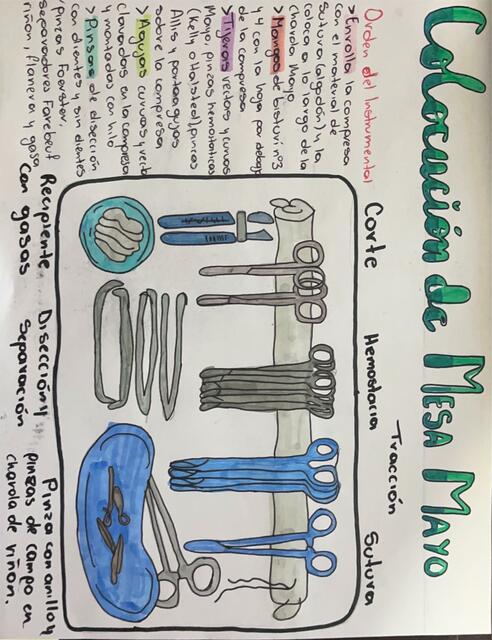 Colocación de Mesa Mayo
Orden del Instrumental
>Enrolla la compresa
con el material de
sutura (algodón) y la
coloca a lo largo de la
charola Mayo
>Mangos de bisturí nº3
y 4 con la hoja por debajo
de la compresa
>Tijeras rectas y curvas
Mayo, pinzas hemostáticas
(Kelly o halsted), pinzas
Allis y portaagujas
sobre la compresa
>Agujas curvas y rectas
clavadas en la compresa
y montadas con hilo
>Pinzas de disección
con dientes y sin dientes
, pinzas Foerster,
separadores Farebeuf
riñon, flanera y gasa
Corte
Hemostacia
Tracción
Sutura
Recipiente
con gasas
Disección y
separación
Pinza con anillo y
pinzas de campo en
charola de riñon.